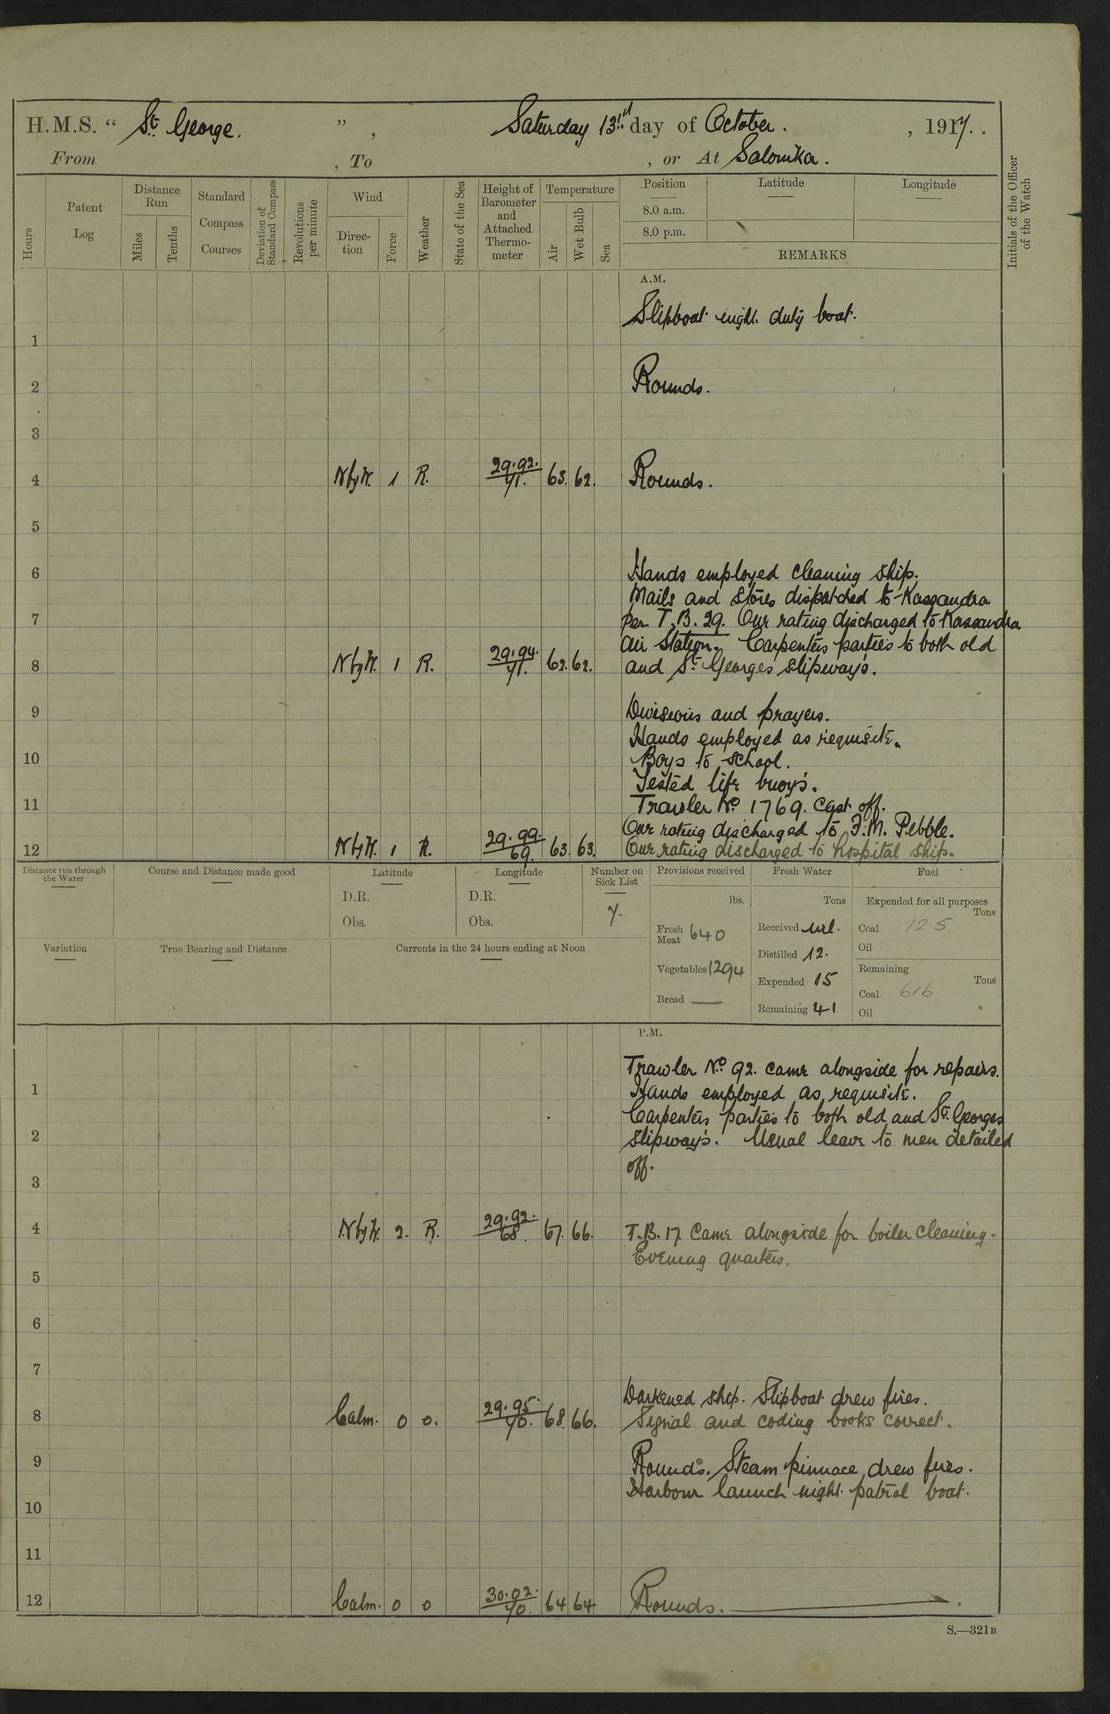 H.M.S. “ St. George. ” , Saturday 13th day of October. , 1917. .
From , To , or At Salonika.
Hours
Patent Log
Distance Run
Miles
Tenths
Standard Compass Courses
Deviation of Standard Compass
Revolutions per minute
Wind
Direction
Force
Weather
State of the Sea
Height of Barometer and Attached Thermometer
Temperature
Air
Wet Bulb
Sea
Position
8.0 a.m.
8.0 p.m.
Latitude
Longitude
REMARKS
Initials of the Officer of the Watch
A.M.
Slipboat night duty boat.
1
2 Rounds.
3
4 N by W. 1 R. 29.92. 71. 63. 62. Rounds.
5
6 Hands employed cleaning ship.
Mails and stores dispatched to Kassandra
7 per T.B. 29. One rating discharged to Kassandra
Air Station. Carpenters parties to both old
8 N by W. 1 R. 29.94. 71. 62. 62. and St. Georges slipways.
9 Divisions and prayers.
Hands employed as requisite.
10 Boys to school.
Tested life buoys.
11 Trawler No 1769. cast off.
One rating discharged to F.M. Pebble.
12 N by W. 1 R. 29.99. 69. 63. 63. One rating discharged to hospital ship.
Distance run through the Water
Course and Distance made good
Latitude
D.R.
Obs.
Longitude
D.R.
Obs.
Number on Sick List
7.
Provisions received
lbs.
Fresh Meat 640
Vegetables 1294
Bread —
Fresh Water
Tons
Received nil.
Distilled 12.
Expended 15
Remaining 41
Fuel
Expended for all purposes
Tons
Coal 12.5
Oil
Remaining
Tons
Coal 616
Oil
Variation
True Bearing and Distance
Currents in the 24 hours ending at Noon
P.M.
Trawler No 92. came alongside for repairs.
1 Hands employed as requisite.
Carpenters parties to both old and St. Georges
2 slipways. Usual leave to men detailed
off.
3
4 N by W. 2. R. 29.92. 68. 67. 66. T.B. 17 came alongside for boiler cleaning.
Evening quarters.
5
6
7
Darkened ship. Slipboat drew fires.
8 Calm. 0 0. 29.95. 70. 68. 66. Signal and coding books correct.
9 Rounds. Steam pinnace drew fires.
Harbour launch night patrol boat.
10
11
12 Calm. 0 0 30.02. 70. 64 64 Rounds.
S.—321B